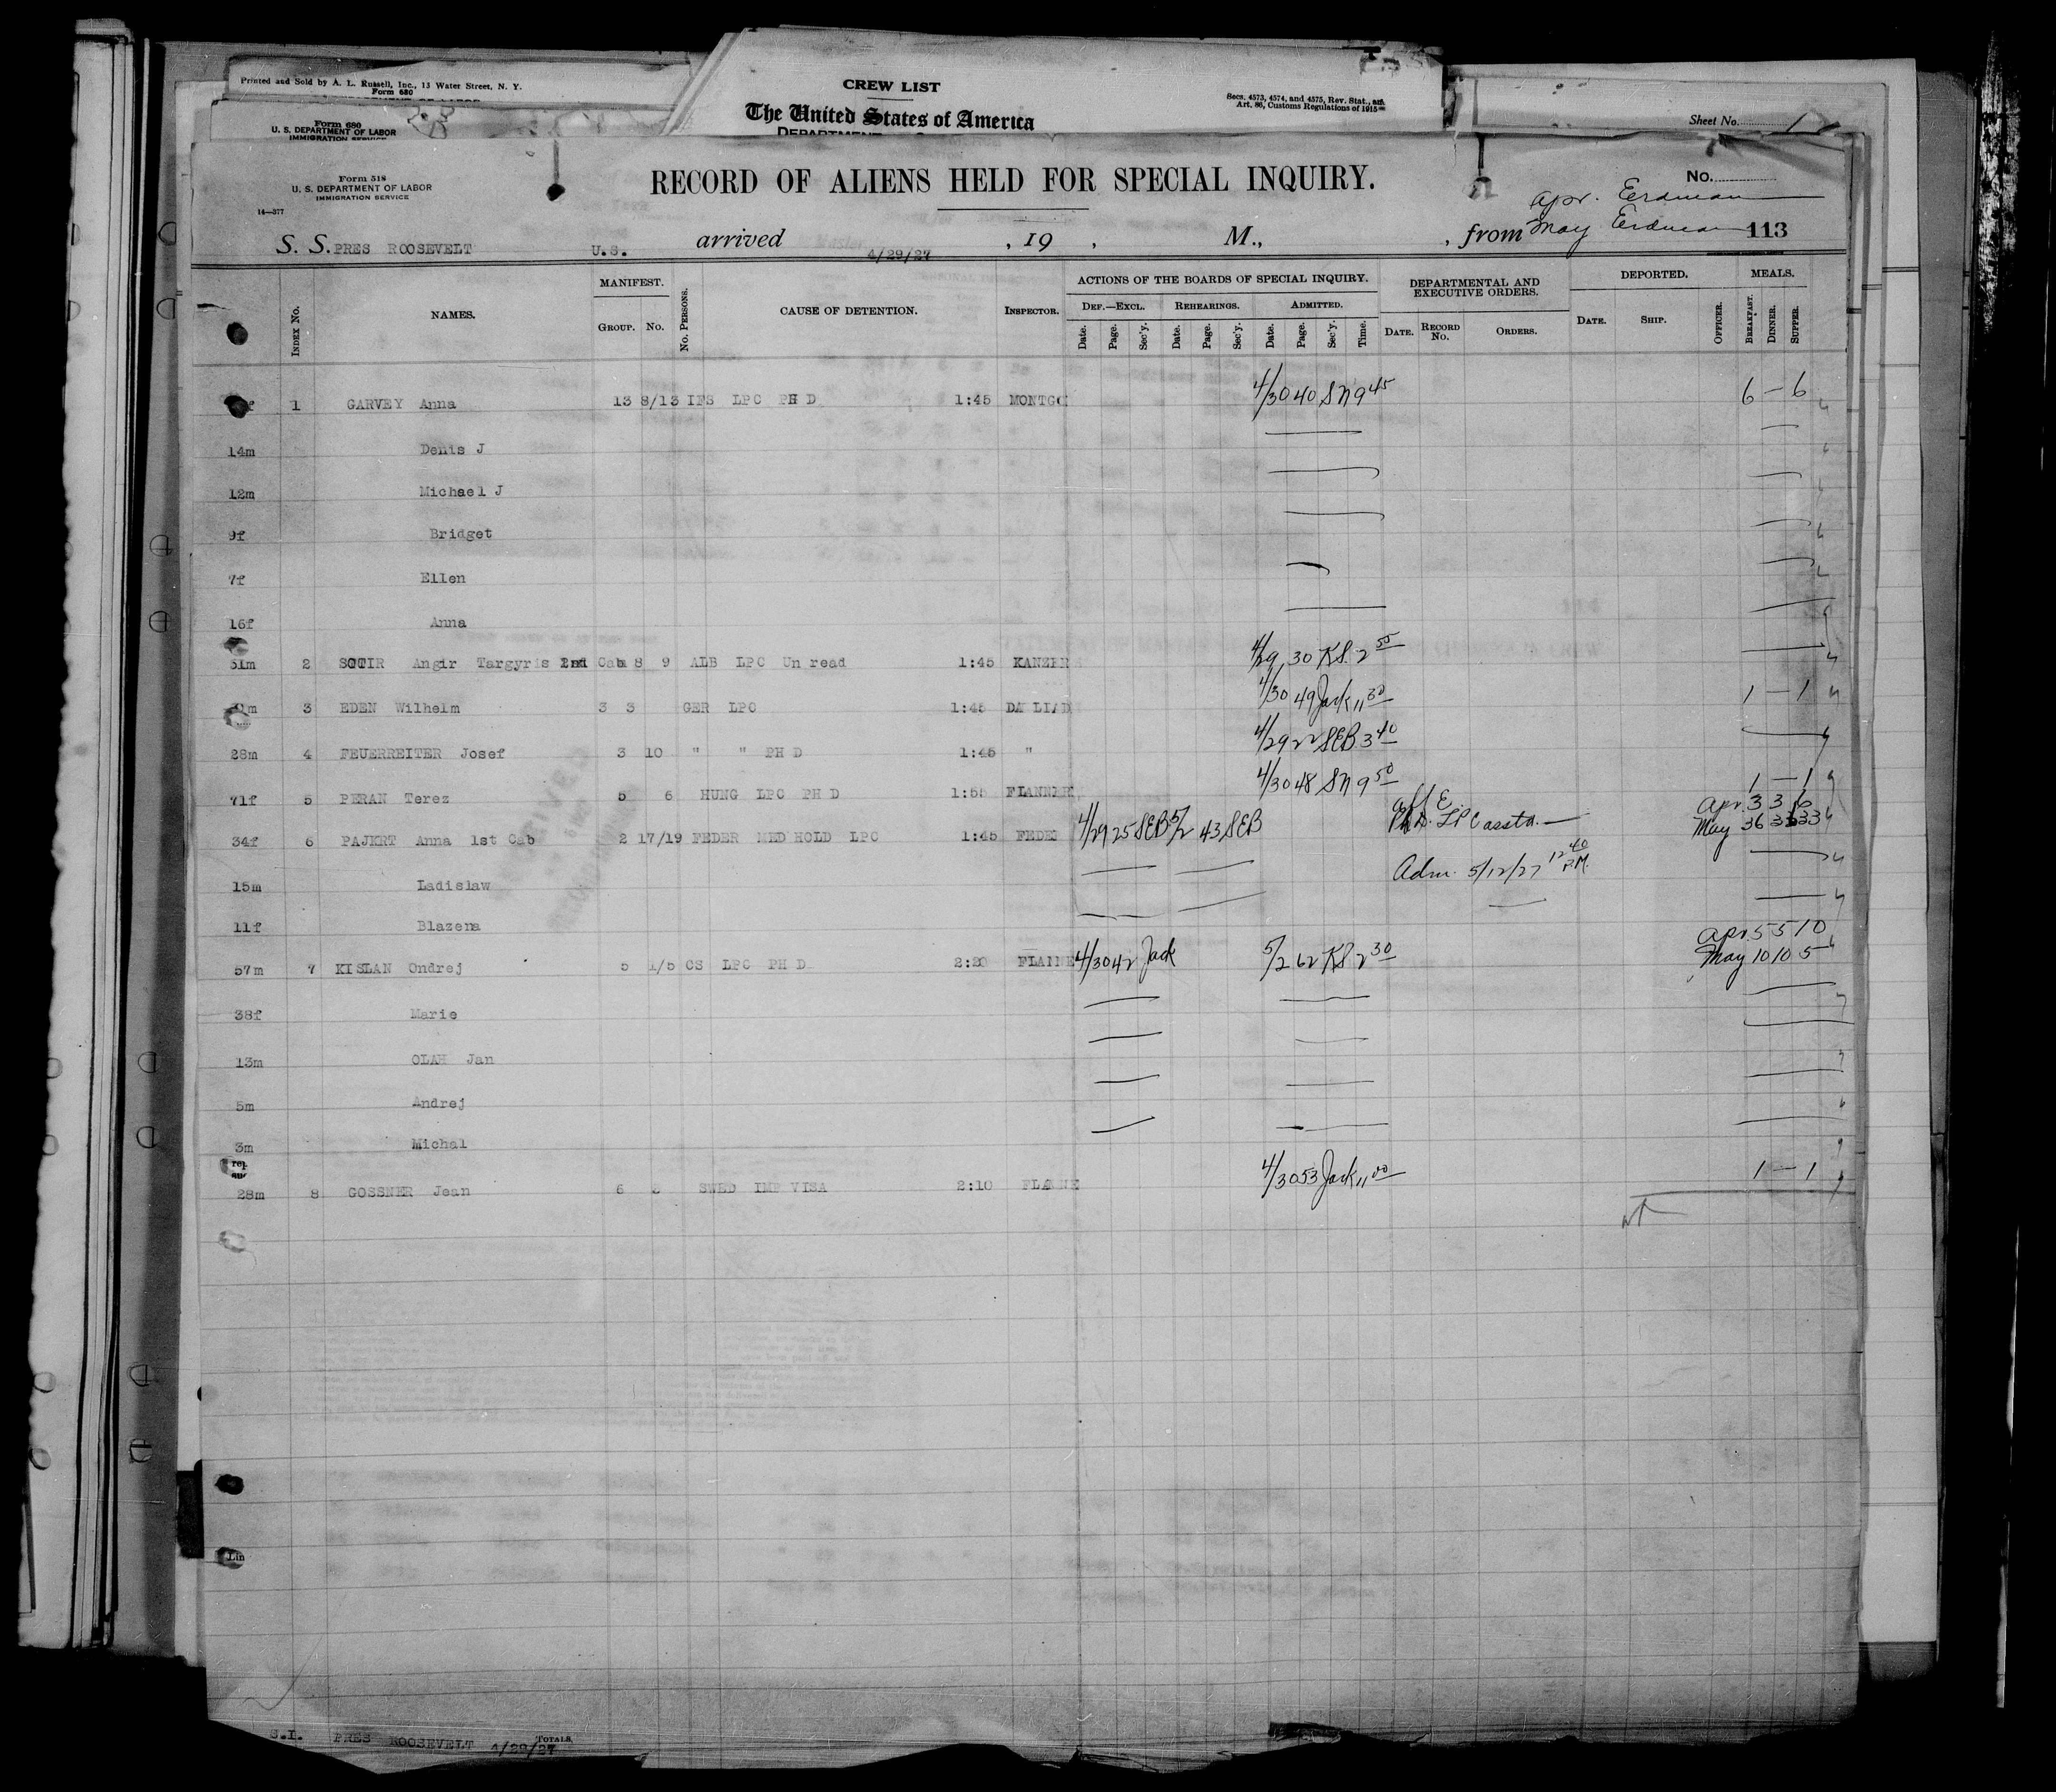 Printed and Sold by A. L. Russell, Inc., 13 Water Street, N. Y.
Form 680
CREW LIST
The United States of America
Secs. 4573, 4574, and 4575, Rev. Stat., and
Art. 86, Customs Regulations of 1915
Sheet No. 1
Form 680
U. S. DEPARTMENT OF LABOR
IMMIGRATION SERVICE
Form 518
U. S. DEPARTMENT OF LABOR
IMMIGRATION SERVICE
14—377
RECORD OF ALIENS HELD FOR SPECIAL INQUIRY.
No.
Apr. Erdman
May Erdman 113
S. S. PRES ROOSEVELT U.S. arrived 4/29/27, 19 , M., , from
INDEX No. NAMES. MANIFEST. GROUP. No. No. PERSONS. CAUSE OF DETENTION. INSPECTOR. ACTIONS OF THE BOARDS OF SPECIAL INQUIRY. DEF.—EXCL. Date. Page. Sec'y. REHEARINGS. Date. Page. Sec'y. ADMITTED. Date. Page. Sec'y. Time. DEPARTMENTAL AND EXECUTIVE ORDERS. DATE. RECORD No. ORDERS. DEPORTED. DATE. SHIP. OFFICER. MEALS. BREAKFAST. DINNER. SUPPER.
1 GARVEY Anna 13 8/13 IFS LPC PH D 1:45 MONTGO 4/30 40 SN 9 45 6 — 6
14m Denis J
12m Michael J
9f Bridget
7f Ellen
16f Anna
51m 2 SOTIR Angir Targyris 2nd Cab 8 9 ALB LPC Un read 1:45 KANZER 4/29 30 KS 2 55
3 EDEN Wilhelm 3 3 GER LPC 1:45 4/30 49 Jack 11 30 1 — 1
28m 4 FEUERREITER Josef 3 10 " " PH D 1:45 " 4/29 22 SEB 3 40
71f 5 PERAN Terez 5 6 HUNG LPC PH D 1:55 FLANNER 4/30 48 SN 9 50 1 — 1
34f 6 PAJKRT Anna 1st Cab 2 17/19 FEDER MED HOLD LPC 1:45 FEDE 4/29 25 SEB 5/2 43 SEB Ph D. LPC assta. — Apr 3 3 6
May 36 33 33
15m Ladislaw Adm. 5/12/27 12 40 P.M.
11f Blazena
57m 7 KISLAN Ondrej 5 1/5 CS LPC PH D 2:20 FLANNE 4/30 42 Jack 5/2 62 KS 2 30 Apr 5 5 10
May 10 10 5
38f Marie
13m OLAH Jan
5m Andrej
3m Michal
28m 8 GOSSNER Jean 6 SWED IMP VISA 2:10 4/30 53 Jack 11 00 1 — 1
S.I. PRES ROOSEVELT 4/29/27 TOTALS,